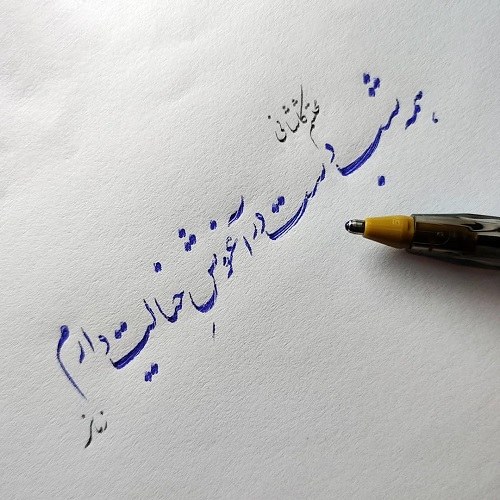 همه شب دست در آغوشِ خیالت دارم
محتشم کاشانی